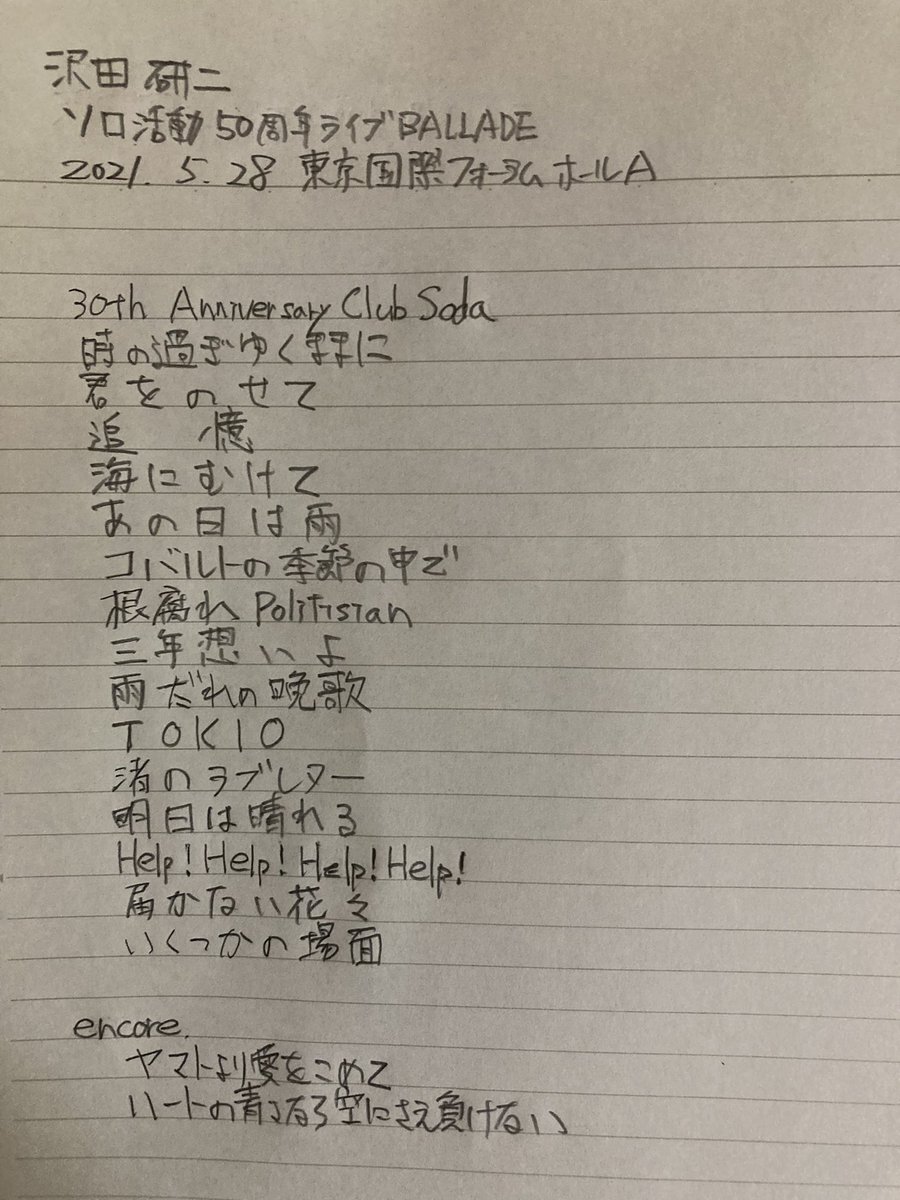 沢田 研二
ソロ活動 50周年ライブBALLADE
2021. 5. 28 東京国際フォーラム ホールA
30th Anniversary Club Soda
時の過ぎゆくままに
君をのせて
追 憶
海にむけて
あの日は雨
コバルトの季節の中で
根腐れ Politisian
三年想いよ
雨だれの晩歌
TOKIO
渚のラブレター
明日は晴れる
Help! Help! Help! Help!
届かない花々
いくつかの場面
encore.
ヤマトより愛をこめて
ハートの青さなら空にさえ負けない